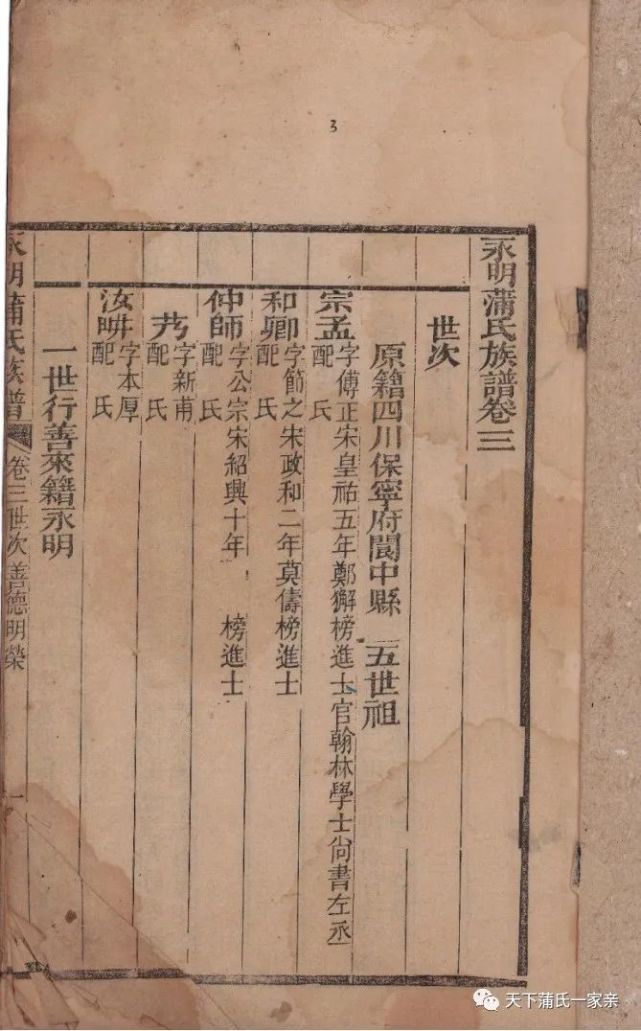 3
永明蒲氏族譜卷三
世次
原籍四川保寧府閬中縣 五世祖
宗孟字傅正宋皇祐五年鄭獬榜進士官翰林學士尚書左丞
配 氏
和卿字節之宋政和二年莫儔榜進士
配 氏
仲師字公宗宋紹興十年 榜進士
配 氏
艿字新甫
配 氏
汝畊字本厚
配 氏
一世行善來籍永明
永明蒲氏族譜 卷三世次善德明榮 一
天下蒲氏一家亲